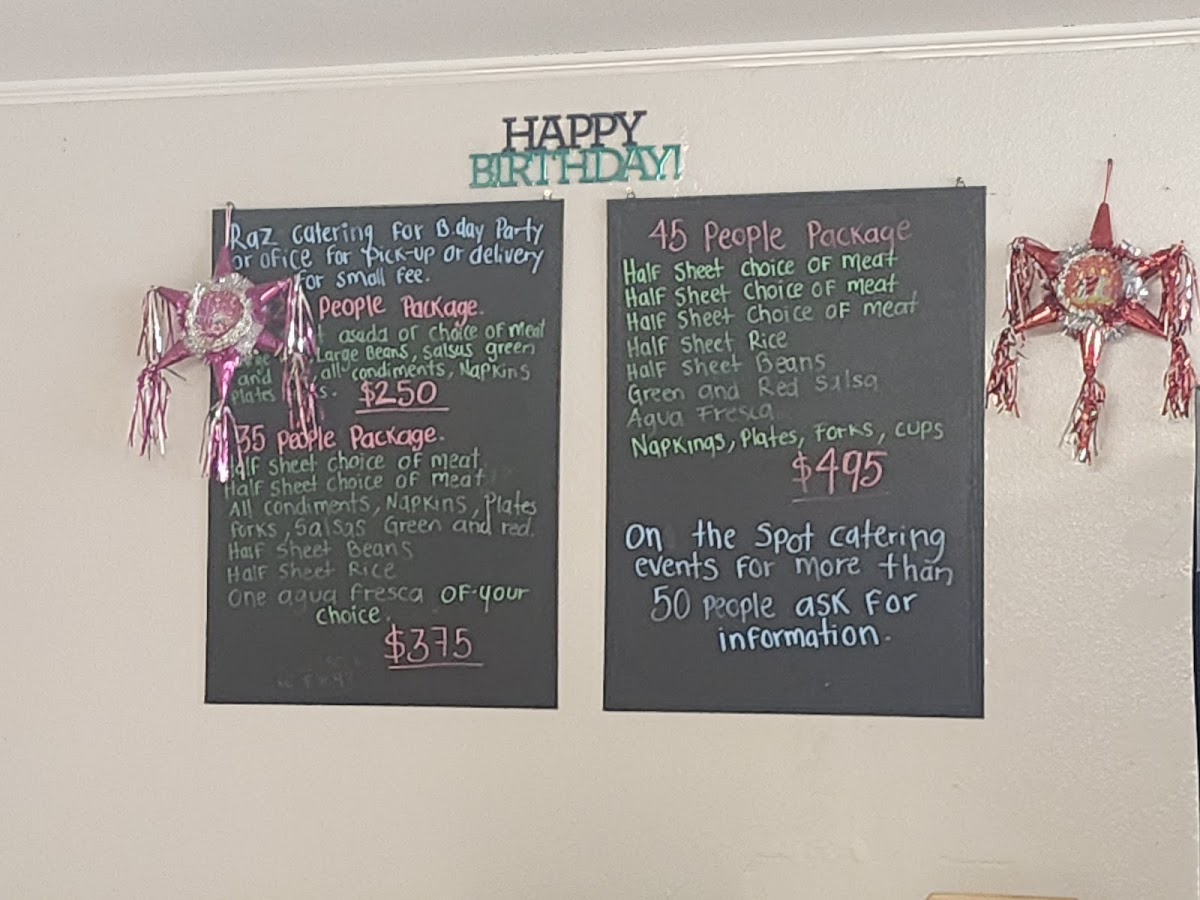 HAPPY
BIRTHDAY!
Raz catering for B.day Party
or ofice for pick-up or delivery
for small fee.
People Package.
asada or choice of meat
Large Beans, salsas green
and all condiments, Napkins
Plates
$250
35 People Package.
Half sheet choice of meat
Half sheet choice of meat
All condiments, Napkins, Plates
forks, salsas Green and red.
Half sheet Beans
Half sheet Rice
One agua fresca of your
choice.
$375
45 People Package
Half sheet choice of meat
Half sheet choice of meat
Half sheet choice of meat
Half sheet Rice
Half sheet Beans
Green and Red Salsa
Agua Fresca
Napkings, Plates, Forks, cups
$495
On the spot catering
events for more than
50 people ask for
information.